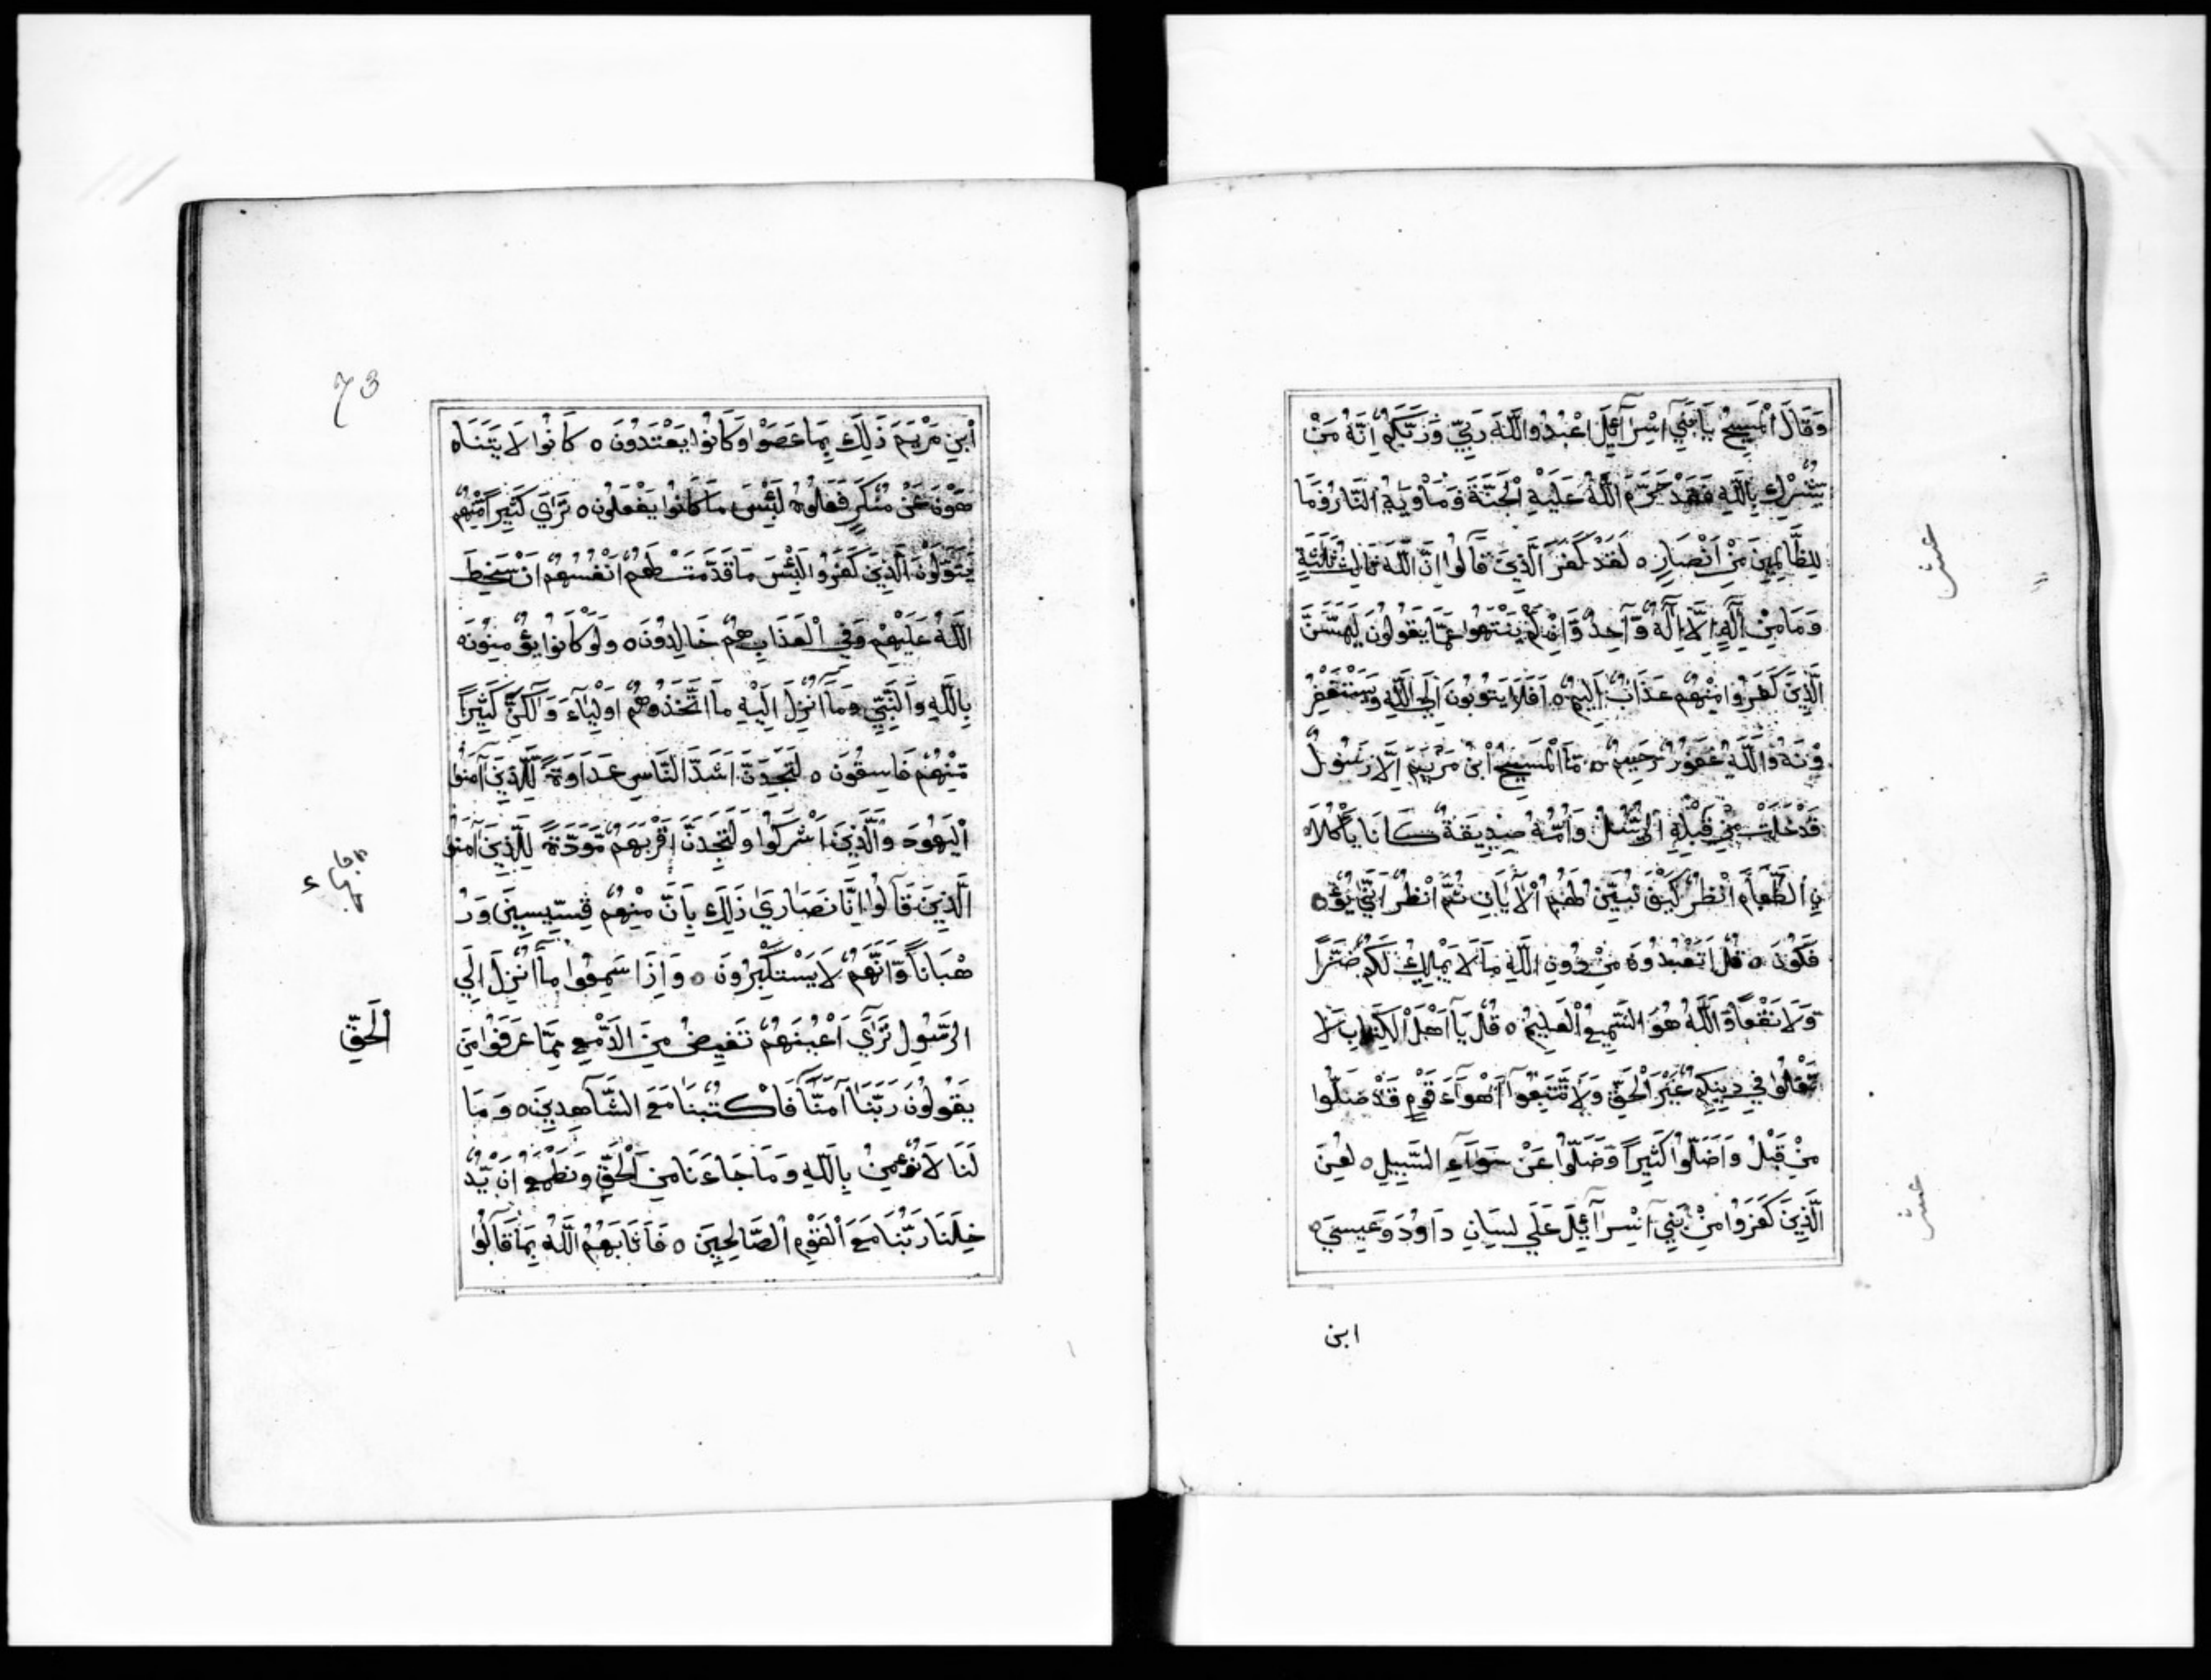 وَقَالَ الْمَسِيحُ يَا بَنِي اِسْرَآئِلَ اعْبُدُوا اللَّهَ رَبِّي وَرَبَّكُمْ اِنَّهُ مَنْ
يُشْرِكْ بِاللَّهِ فَقَدْ حَرَّمَ اللَّهُ عَلَيْهِ الْجَنَّةَ وَمَاْوٰيهُ النَّارُ وَمَا
لِلظَّالِمِينَ مِنْ اَنْصَارٍ ه لَقَدْ كَفَرَ الَّذِينَ قَالُوا اِنَّ اللَّهَ ثَالِثُ ثَلٰثَةٍ
وَمَا مِنْ اِلٰهٍ اِلَّا اِلٰهٌ وَّاحِدٌ وَاِنْ لَّمْ يَنْتَهُوا عَمَّا يَقُولُونَ لَيَمَسَّنَّ
الَّذِينَ كَفَرُوا مِنْهُمْ عَذَابٌ اَلِيمٌ ه اَفَلَا يَتُوبُونَ اِلَي اللَّهِ وَيَسْتَغْفِرُ
وْنَهُ وَاللَّهُ غَفُورٌ رَحِيمٌ ه مَا الْمَسِيحُ ابْنُ مَرْيَمَ اِلَّا رَسُولٌ
قَدْ خَلَتْ مِنْ قَبْلِهِ الرُّسُلُ وَاُمُّهُ صِدِّيقَةٌ كَانَا يَاْكُلَاه
نِ الطَّعَامَ اُنْظُرْ كَيْفَ نُبَيِّنُ لَهُمُ الْاٰيَاتِ ثُمَّ انْظُرْ اَنّٰي يُؤْه
فَكُونَ ه قُلْ اَتَعْبُدُونَ مِنْ دُونِ اللَّهِ مَا لَا يَمْلِكُ لَكُمْ ضَرًّا
وَّلَا نَفْعًا وَاللَّهُ هُوَ السَّمِيعُ الْعَلِيمُ ه قُلْ يَا اَهْلَ الْكِتَابِ لَا
تَغْلُوا فِي دِينِكُمْ غَيْرَ الْحَقِّ وَلَا تَتَّبِعُوا اَهْوَآءَ قَوْمٍ قَدْ ضَلُّوا
مِنْ قَبْلُ وَاَضَلُّوا كَثِيرًا وَّضَلُّوا عَنْ سَوَآءِ السَّبِيلِ ه لُعِنَ
الَّذِينَ كَفَرُوا مِنْ بَنِي اِسْرَآئِلَ عَلَي لِسَانِ دَاوُدَ وَعِيسَي ه
ابن
عشر
عشر
73
ابْنِ مَرْيَمَ ذَلِكَ بِمَا عَصَوْا وَكَانُوا يَعْتَدُونَ ه كَانُوا لَا يَتَنَاه
هَوْنَ عَنْ مُنْكَرٍ فَعَلُوهُ لَبِئْسَ مَا كَانُوا يَفْعَلُونَ ه تَرَي كَثِيرًا مِّنْهُمْ
يَتَوَلَّوْنَ الَّذِينَ كَفَرُوا لَبِئْسَ مَا قَدَّمَتْ لَهُمْ اَنْفُسُهُمْ اَنْ سَخِطَ
اللَّهُ عَلَيْهِمْ وَفِي الْعَذَابِ هُمْ خَالِدُونَ ه وَلَوْ كَانُوا يُؤْمِنُونَ
بِاللَّهِ وَالنَّبِيِّ وَمَا اُنْزِلَ اِلَيْهِ مَا اتَّخَذُوهُمْ اَوْلِيَآءَ وَلٰكِنَّ كَثِيرًا
مِّنْهُمْ فَاسِقُونَ ه لَتَجِدَنَّ اَشَدَّ النَّاسِ عَدَاوَةً لِّلَّذِينَ آمَنُوا
الْيَهُودَ وَالَّذِينَ اَشْرَكُوا وَلَتَجِدَنَّ اَقْرَبَهُمْ مَّوَدَّةً لِلَّذِينَ آمَنُوا
الَّذِينَ قَالُوا اِنَّا نَصَارَي ذَلِكَ بِاَنَّ مِنْهُمْ قِسِّيسِينَ وَرُ
هْبَانًا وَّاَنَّهُمْ لَا يَسْتَكْبِرُونَ ه وَاِذَا سَمِعُوا مَا اُنْزِلَ اِلَي
الرَّسُولِ تَرَي اَعْيُنَهُمْ تَفِيضُ مِنَ الدَّمْعِ مِمَّا عَرَفُوا مِنَ
الْحَقِّ
يَقُولُونَ رَبَّنَا آمَنَّا فَاكْتُبْنَا مَعَ الشَّاهِدِينَ ه وَمَا
لَنَا لَا نُؤْمِنُ بِاللَّهِ وَمَا جَاءَنَا مِنَ الْحَقِّ وَنَطْمَعُ اَنْ يُّدْ
خِلَنَا رَبُّنَا مَعَ الْقَوْمِ الصَّالِحِينَ ه فَاَثَابَهُمُ اللَّهُ بِمَا قَالُوا